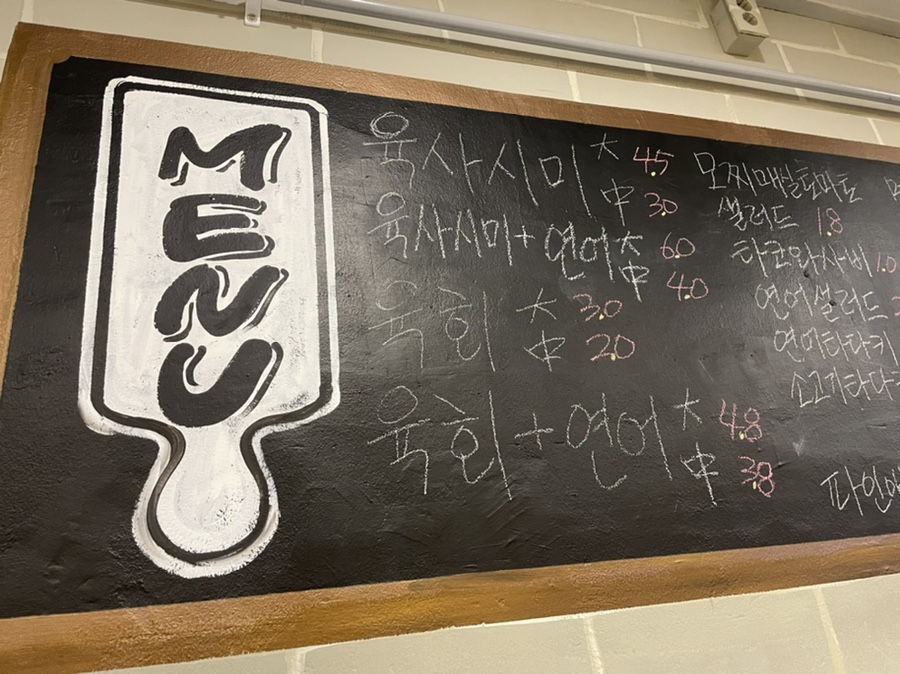 MENU
육사시미 大 4.5
中 3.0
육사시미+연어 大 6.0
中 4.0
육회 大 3.0
中 2.0
육회+연어 大 4.8
中 3.8
모찌매실토마토
샐러드 1.8
타코와사비 1.0
연어샐러드
연어타다키
소고기타다키
파인애